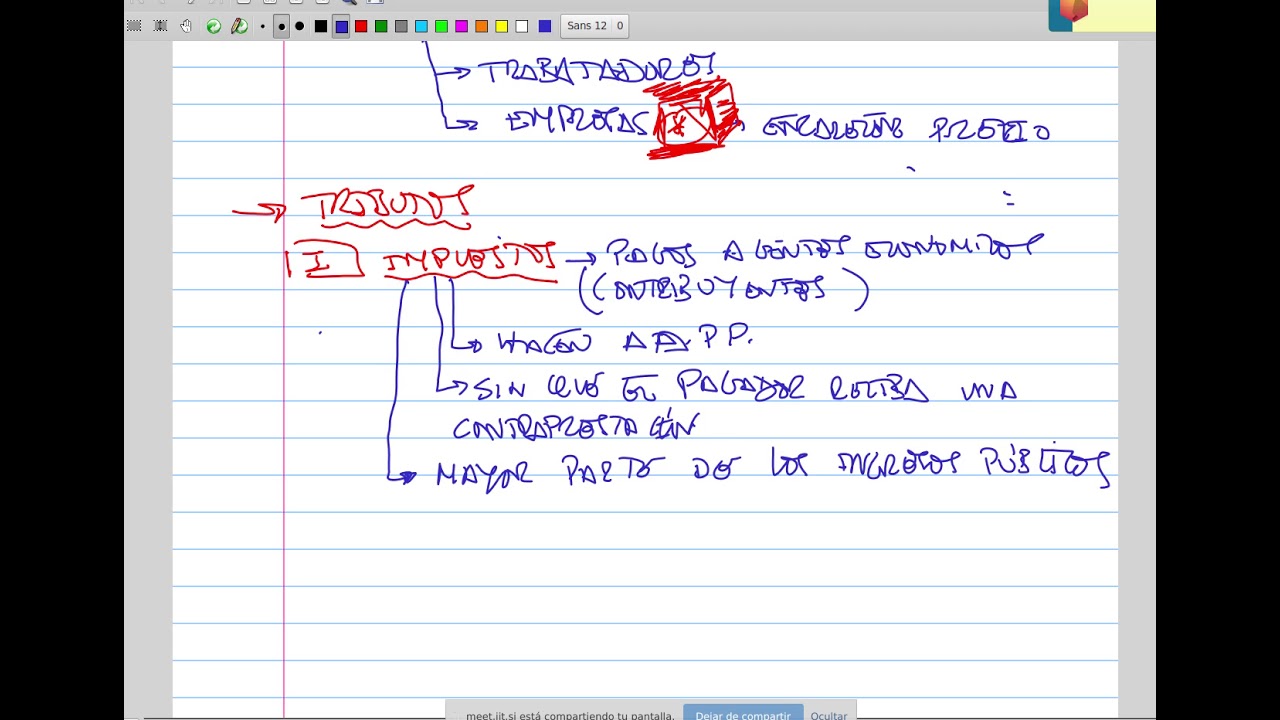 Sans 12 0
→ TRABAJADORES
→ EMPRESAS * → ENCARECEN PRECIO
=
→ TRIBUTOS
I IMPUESTOS → PAGOS AGENTES ECONÓMICOS
(CONTRIBUYENTES)
→ HACEN A AA.PP.
→ SIN QUE EL PAGADOR RECIBA UNA
CONTRAPRESTACIÓN
→ MAYOR PARTE DE LOS INGRESOS PÚBLICOS
meet.jit.si está compartiendo tu pantalla. Dejar de compartir Ocultar